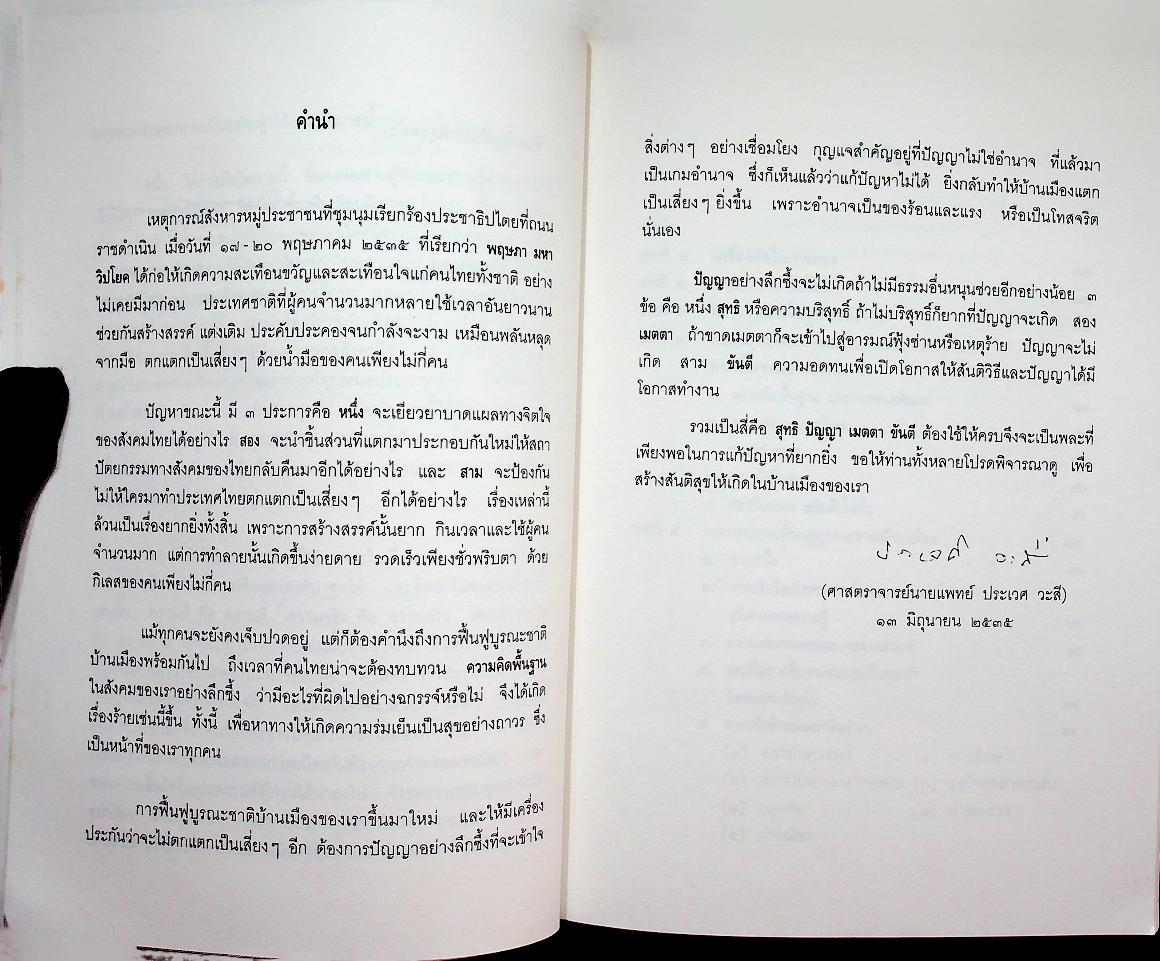 คำนำ
เหตุการณ์สังหารหมู่ประชาชนที่ชุมนุมเรียกร้องประชาธิปไตยที่ถนน
ราชดำเนิน เมื่อวันที่ ๑๗-๒๐ พฤษภาคม ๒๕๓๕ ที่เรียกว่า พฤษภา มหา
วิปโยค ได้ก่อให้เกิดความสะเทือนขวัญและสะเทือนใจแก่คนไทยทั้งชาติ อย่าง
ไม่เคยมีมาก่อน ประเทศชาติที่ผู้คนจำนวนมากหลายใช้เวลาอันยาวนาน
ช่วยกันสร้างสรรค์ แต่งเติม ประคับประคองจนกำลังจะงาม เหมือนพลันหลุด
จากมือ ตกแตกเป็นเสี่ยงๆ ด้วยน้ำมือของคนเพียงไม่กี่คน
ปัญหาขณะนี้ มี ๓ ประการคือ หนึ่ง จะเยียวยาบาดแผลทางจิตใจ
ของสังคมไทยได้อย่างไร สอง จะนำชิ้นส่วนที่แตกมาประกอบกันใหม่ให้สถา
ปัตยกรรมทางสังคมของไทยกลับคืนมาอีกได้อย่างไร และ สาม จะป้องกัน
ไม่ให้ใครมาทำประเทศไทยตกแตกเป็นเสี่ยงๆ อีกได้อย่างไร เรื่องเหล่านี้
ล้วนเป็นเรื่องยากยิ่งทั้งสิ้น เพราะการสร้างสรรค์นั้นยาก กินเวลาและใช้ผู้คน
จำนวนมาก แต่การทำลายนั้นเกิดขึ้นง่ายดาย รวดเร็วเพียงชั่วพริบตา ด้วย
กิเลสของคนเพียงไม่กี่คน
แม้ทุกคนจะยังคงเจ็บปวดอยู่ แต่ก็ต้องคำนึงถึงการฟื้นฟูบูรณะชาติ
บ้านเมืองพร้อมกันไป ถึงเวลาที่คนไทยน่าจะต้องทบทวน ความคิดพื้นฐาน
ในสังคมของเราอย่างลึกซึ้ง ว่ามีอะไรที่ผิดไปอย่างฉกรรจ์หรือไม่ จึงได้เกิด
เรื่องร้ายเช่นนี้ขึ้น ทั้งนี้ เพื่อหาทางให้เกิดความร่มเย็นเป็นสุขอย่างถาวร ซึ่ง
เป็นหน้าที่ของเราทุกคน
การฟื้นฟูบูรณะชาติบ้านเมืองของเราขึ้นมาใหม่ และให้มีเครื่อง
ประกันว่าจะไม่ตกแตกเป็นเสี่ยงๆ อีก ต้องการปัญญาอย่างลึกซึ้งที่จะเข้าใจ
สิ่งต่างๆ อย่างเชื่อมโยง กุญแจสำคัญอยู่ที่ปัญญาไม่ใช่อำนาจ ที่แล้วมา
เป็นเกมอำนาจ ซึ่งก็เห็นแล้วว่าแก้ปัญหาไม่ได้ ยิ่งกลับทำให้บ้านเมืองแตก
เป็นเสี่ยงๆ ยิ่งขึ้น เพราะอำนาจเป็นของร้อนและแรง หรือเป็นโทสจริต
นั่นเอง
ปัญญาอย่างลึกซึ้งจะไม่เกิดถ้าไม่มีธรรมอื่นหนุนช่วยอีกอย่างน้อย ๓
ข้อ คือ หนึ่ง สุทธิ หรือความบริสุทธิ์ ถ้าไม่บริสุทธิ์ก็ยากที่ปัญญาจะเกิด สอง
เมตตา ถ้าขาดเมตตาก็จะเข้าไปสู่อารมณ์ฟุ้งซ่านหรือเหตุร้าย ปัญญาจะไม่
เกิด สาม ขันตี ความอดทนเพื่อเปิดโอกาสให้สันติวิธีและปัญญาได้มี
โอกาสทำงาน
รวมเป็นสี่คือ สุทธิ ปัญญา เมตตา ขันตี ต้องใช้ให้ครบจึงจะเป็นพละที่
เพียงพอในการแก้ปัญหาที่ยากยิ่ง ขอให้ท่านทั้งหลายโปรดพิจารณาดู เพื่อ
สร้างสันติสุขให้เกิดในบ้านเมืองของเรา
ประเวศ วะสี
(ศาสตราจารย์นายแพทย์ ประเวศ วะสี)
๑๓ มิถุนายน ๒๕๓๕